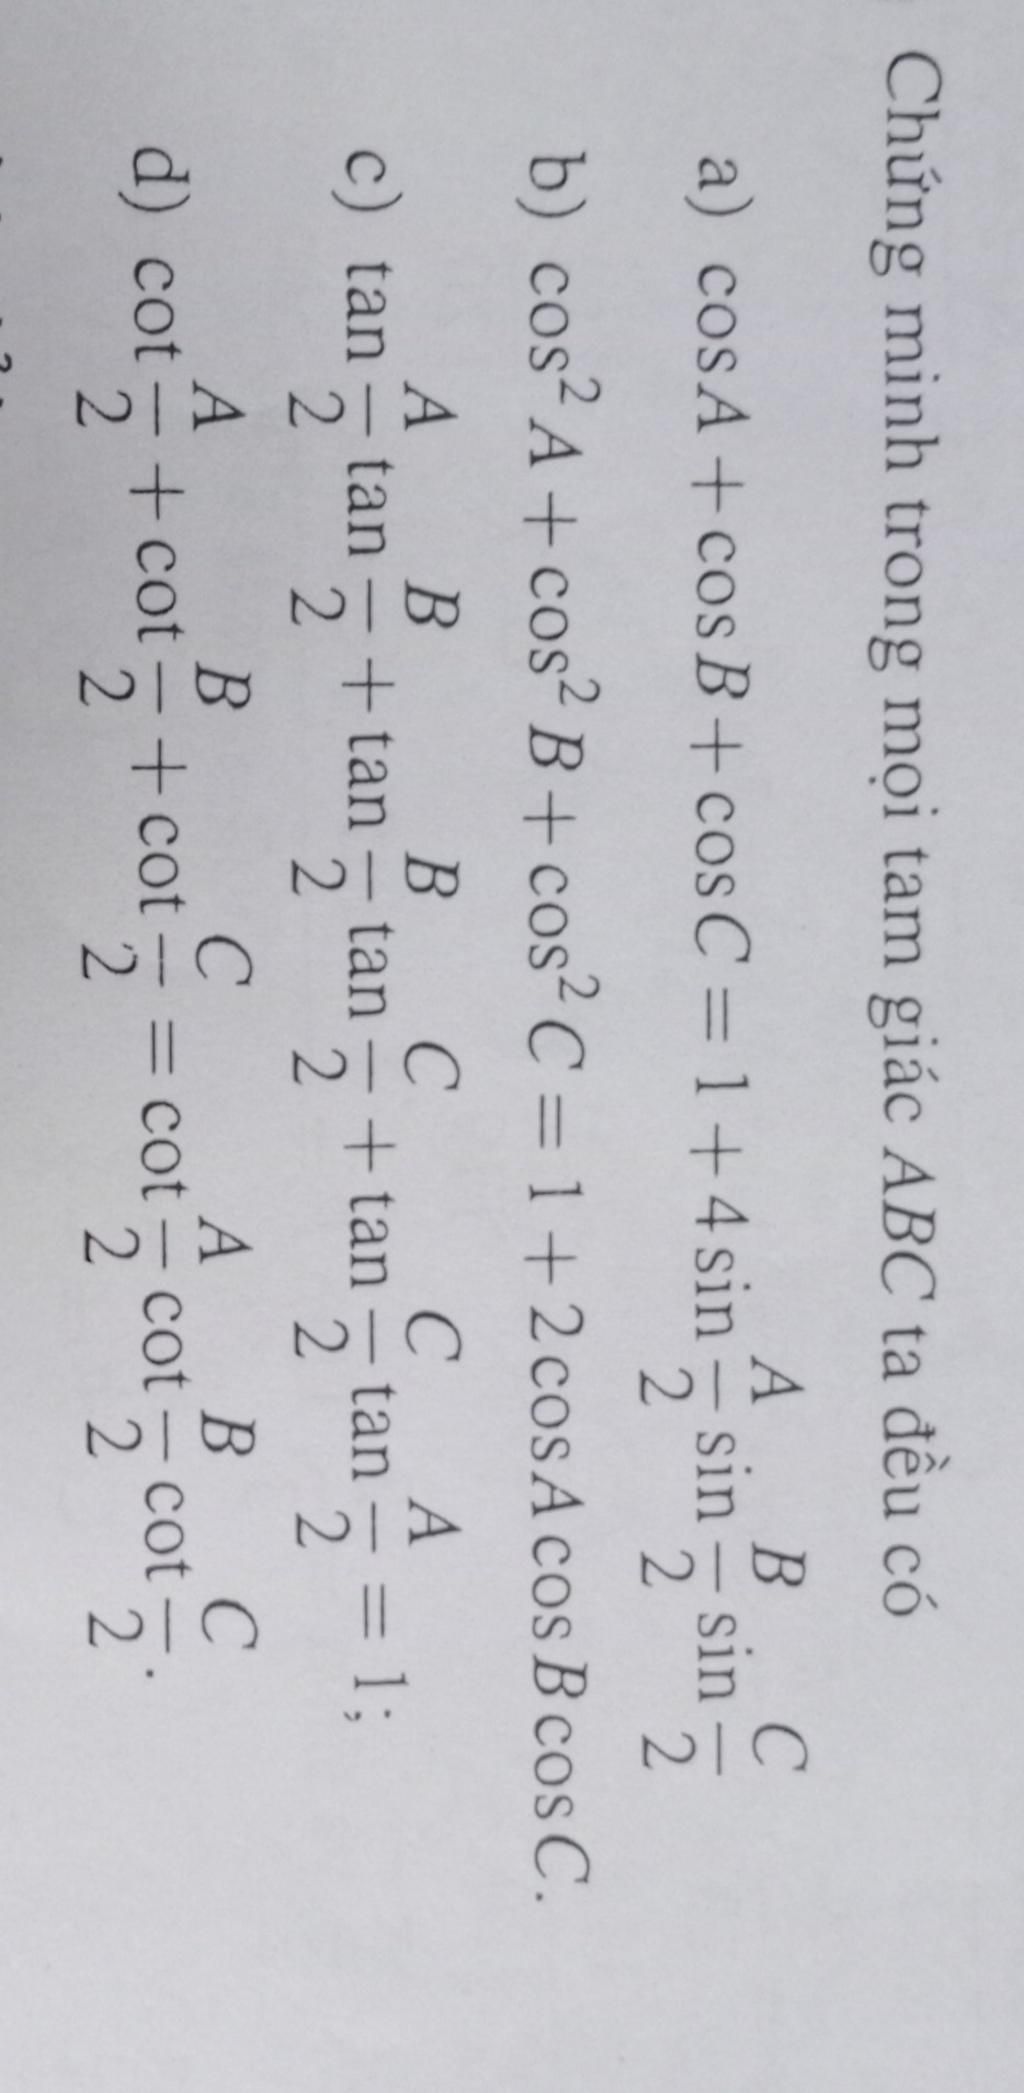 Chứng minh trong mọi tam giác ABC ta đều có
a) cosA + cosB + cosC = 1 + 4 sin A/2 sin B/2 sin C/2
b) cos² A + cos² B + cos² C = 1 + 2 cosA cosB cosC.
c) tan A/2 tan B/2 + tan B/2 tan C/2 + tan C/2 tan A/2 = 1;
d) cot A/2 + cot B/2 + cot C/2 = cot A/2 cot B/2 cot C/2.